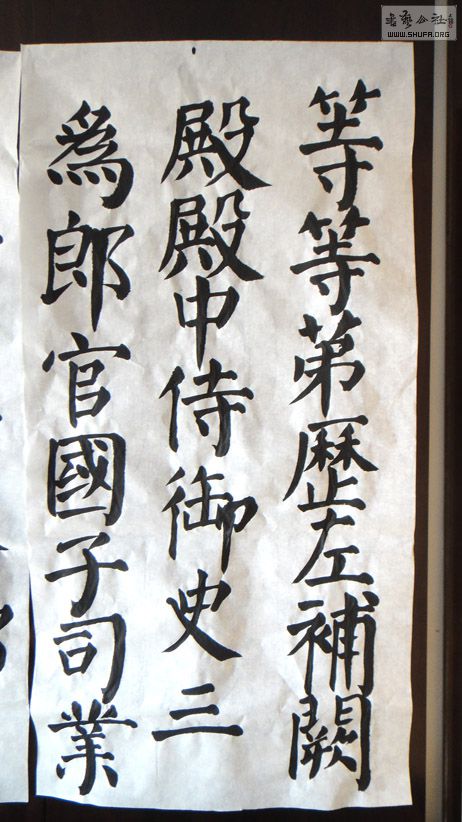 等等第歷左補闕
殿殿中侍御史三
為郎官國子司業
书艺公社
WWW.SHUFA.ORG